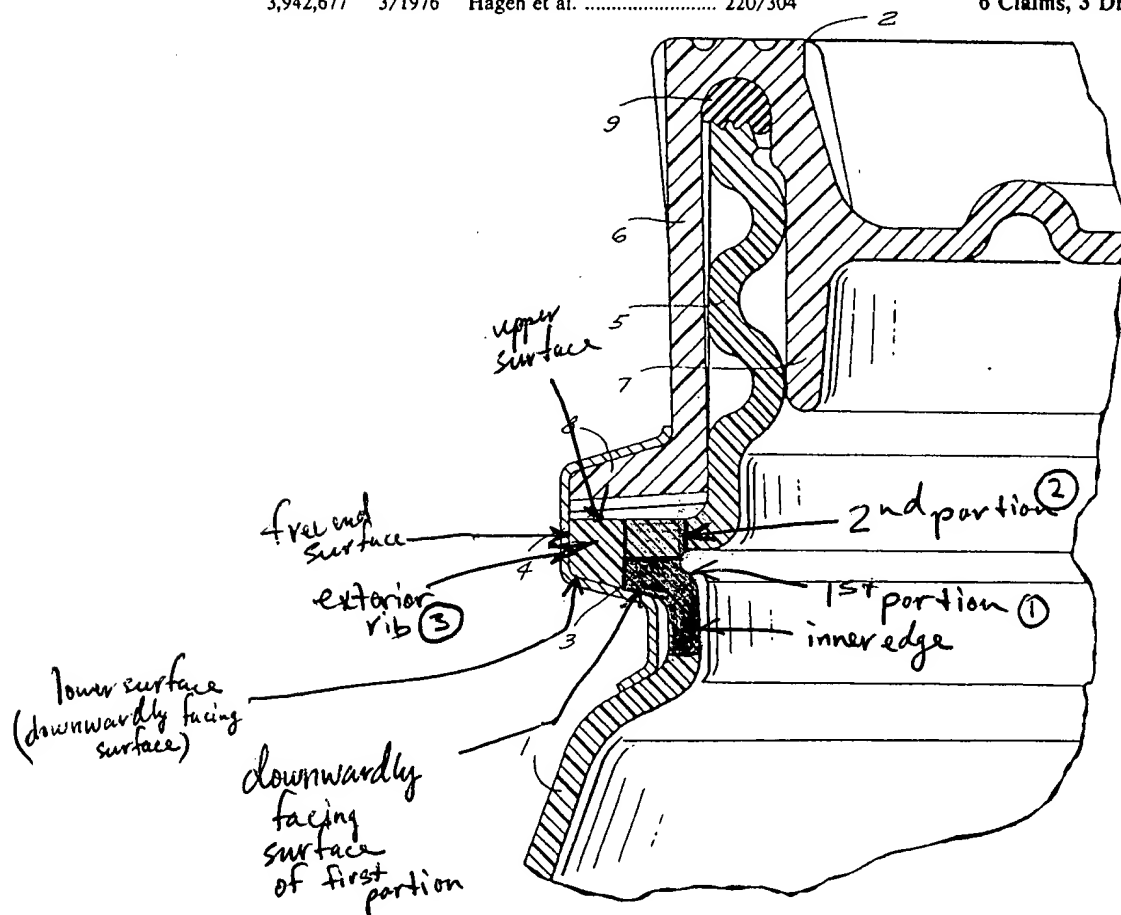 3,942,677 3/1976 Hagen et al. ........................ 220/304
6 Claims, 3 Dr
2
9
6
5
upper
surface
7
8
free end
surface
2nd portion ②
4
exterior
rib ③
1st portion ①
3
inner edge
lower surface
(downwardly facing
surface)
1
downwardly
facing
surface
of first
portion